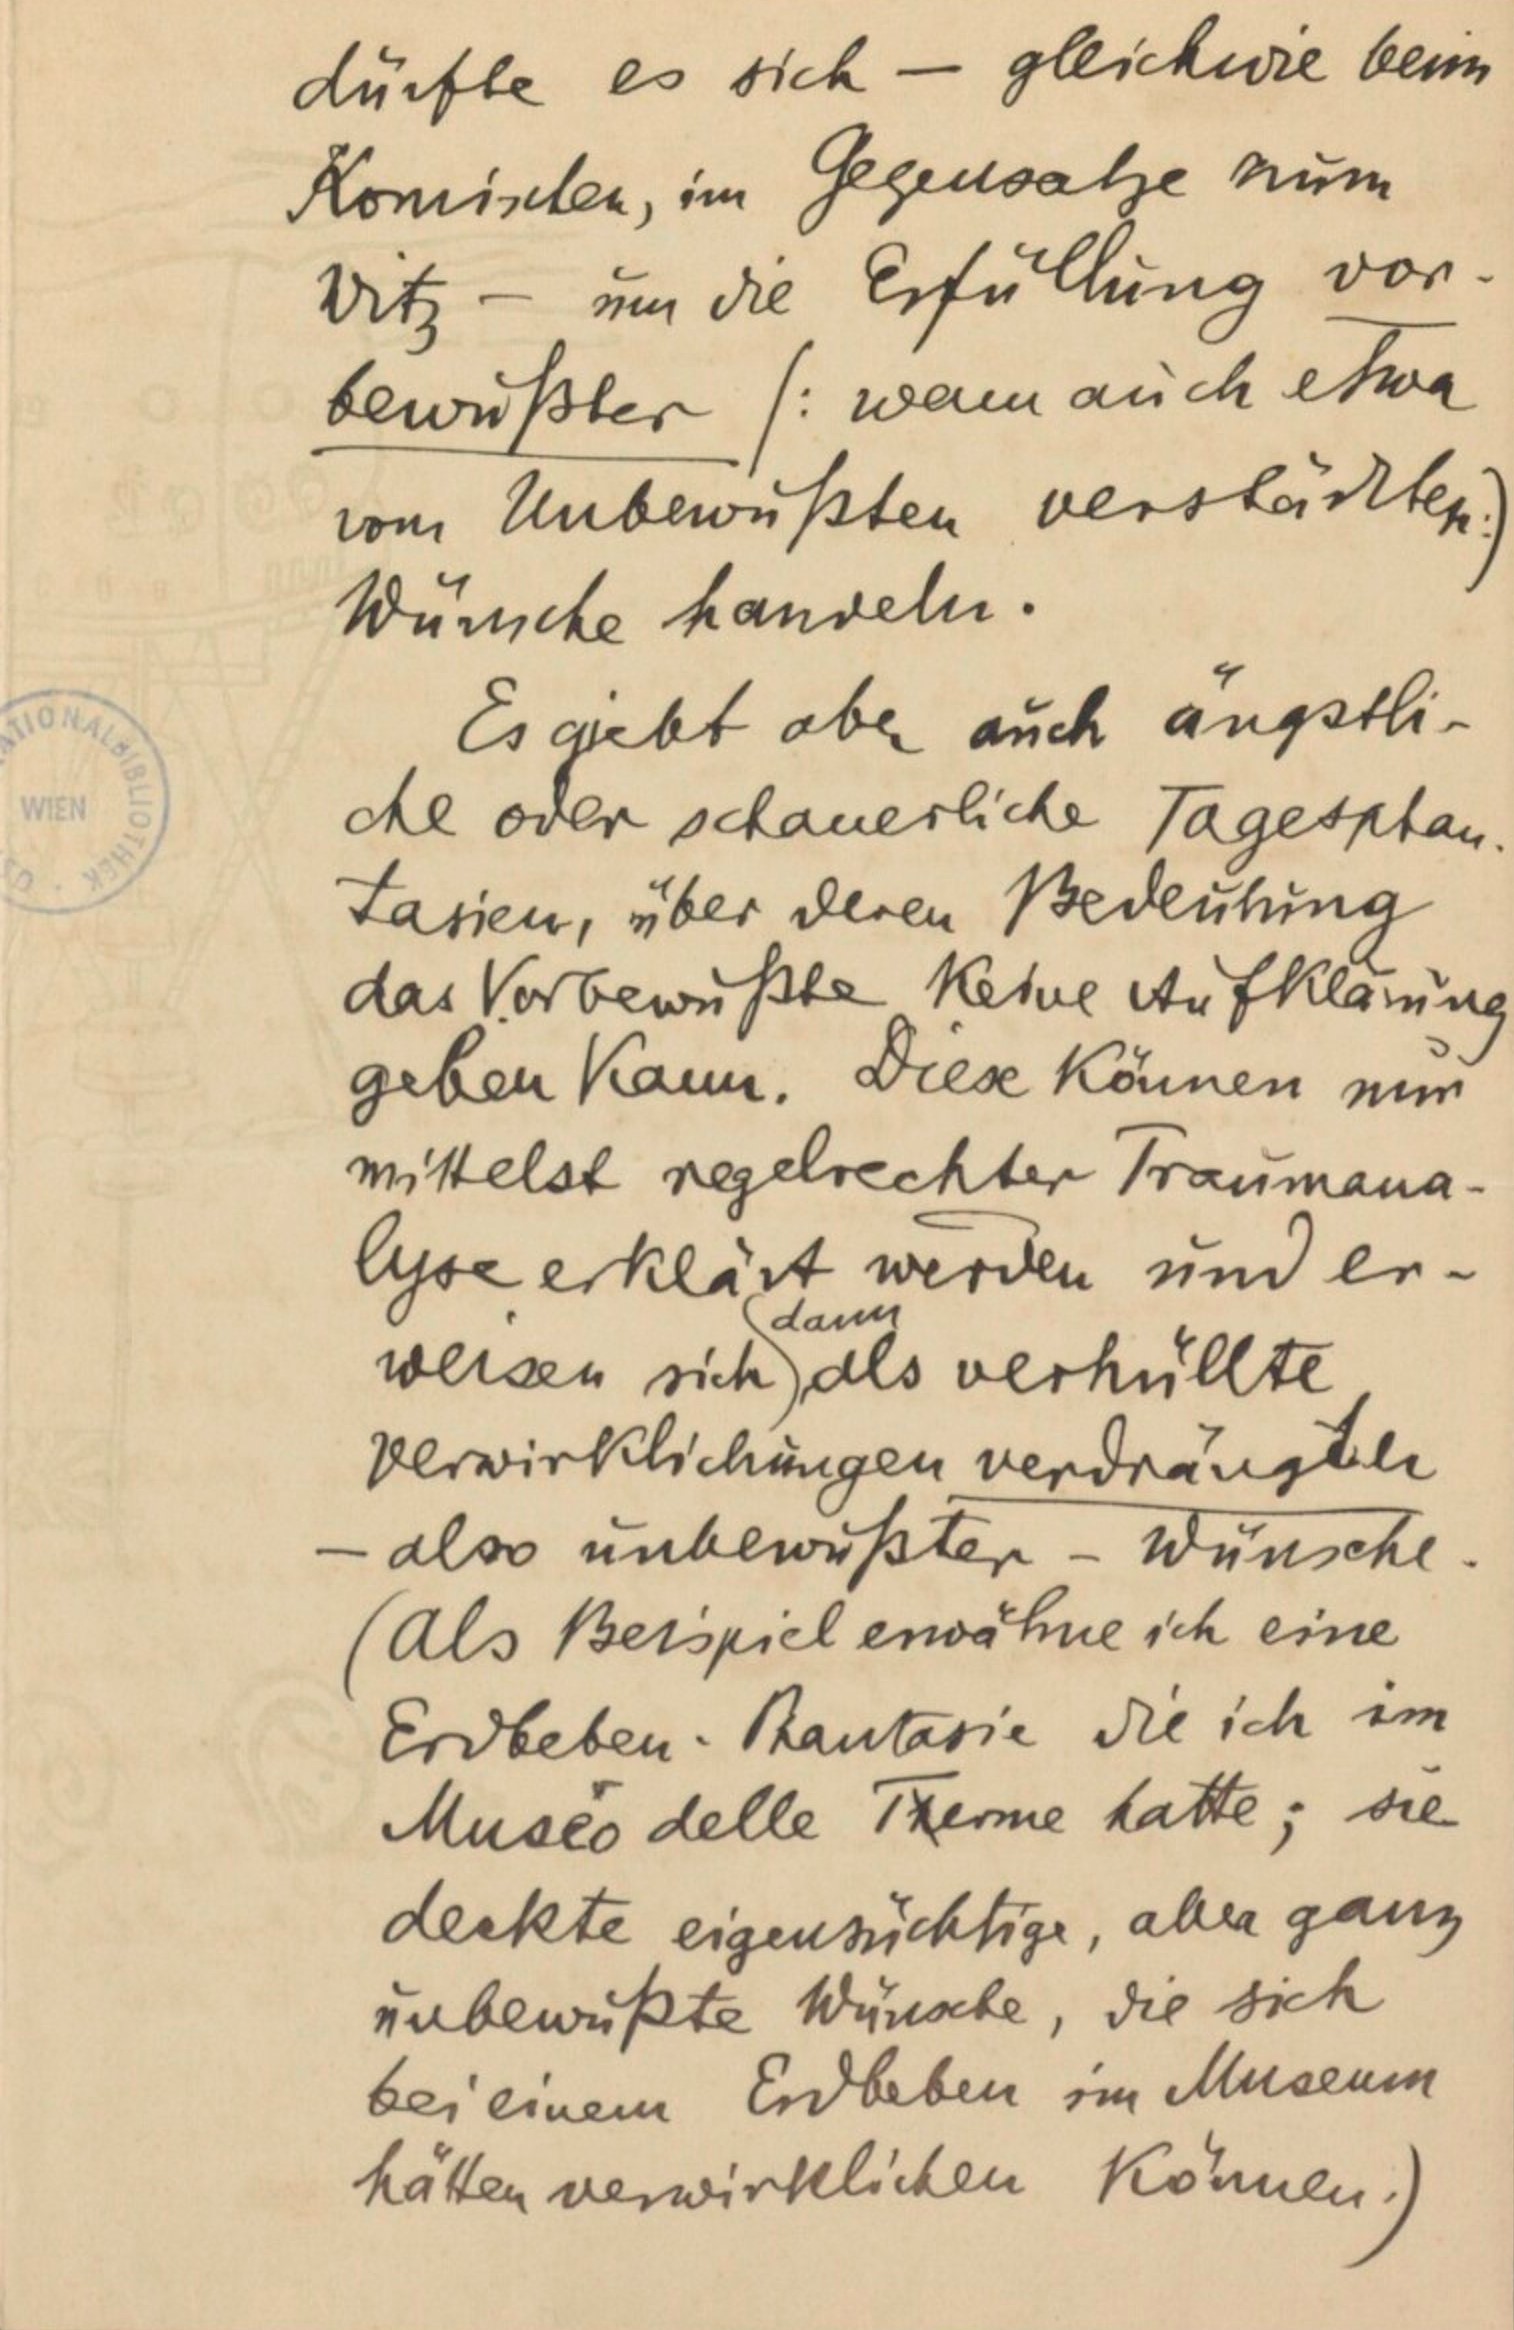 dürfte es sich — gleichwie beim
Komischen, im Gegensatze zum
Witz — um die Erfüllung vor-
bewußter (: wenn auch etwa
vom Unbewußten verstärkten :)
Wünsche handeln.
Es giebt aber auch ängstli-
che oder schauerliche Tagesphan-
tasien, über deren Bedeutung
das Vorbewußte keine Aufklärung
geben kann. Diese können nur
mittelst regelrechter Traumana-
lyse erklärt werden und er-
weisen sich dann als verhüllte
Verwirklichungen verdrängter
— also unbewußter — Wünsche.
(Als Beispiel erwähne ich eine
Erdbeben-Phantasie die ich im
Museo delle Terme hatte; sie
deckte eigensüchtige, aber ganz
unbewußte Wünsche, die sich
bei einem Erdbeben im Museum
hätten verwirklichen können.)
NATIONALBIBLIOTHEK
WIEN